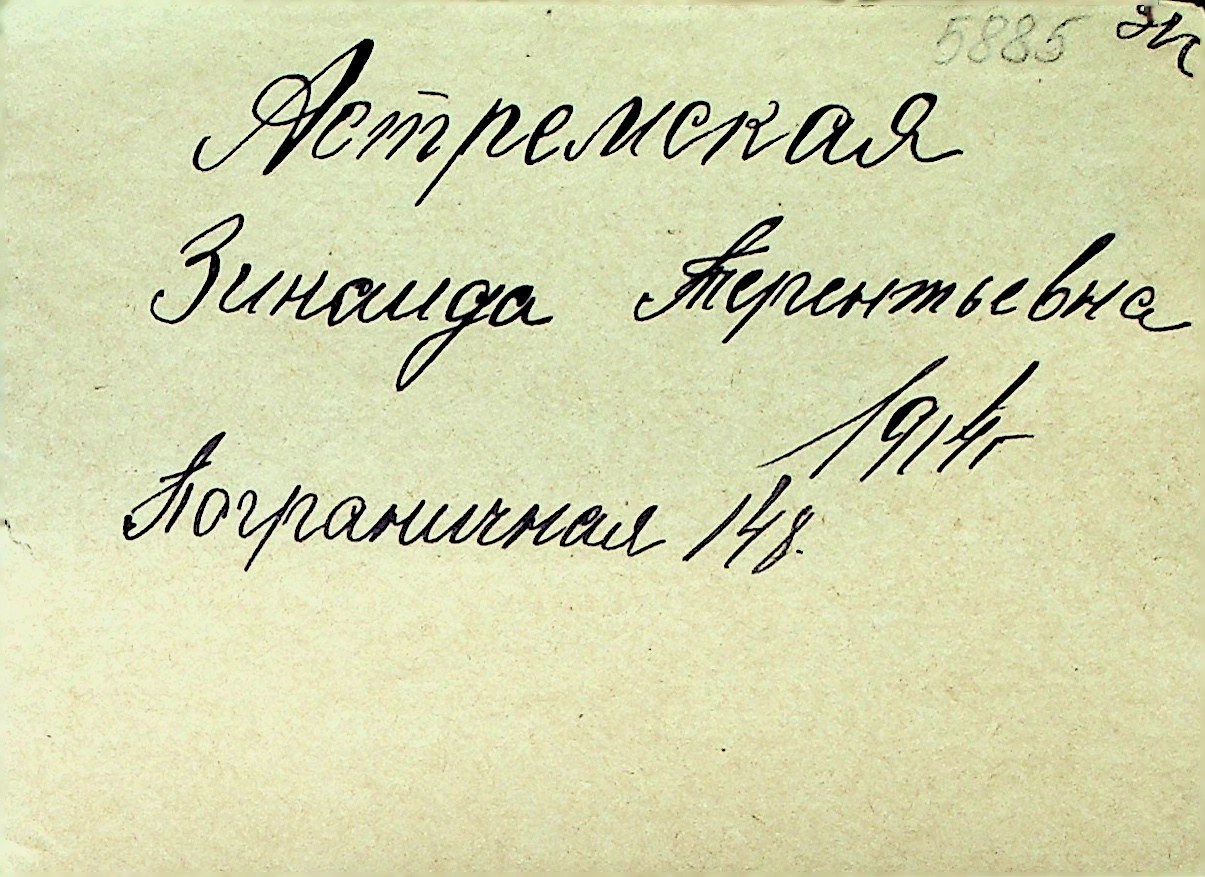 5885
Астремская
Зинаида Терентьевна
1914г
Пограничная 148.